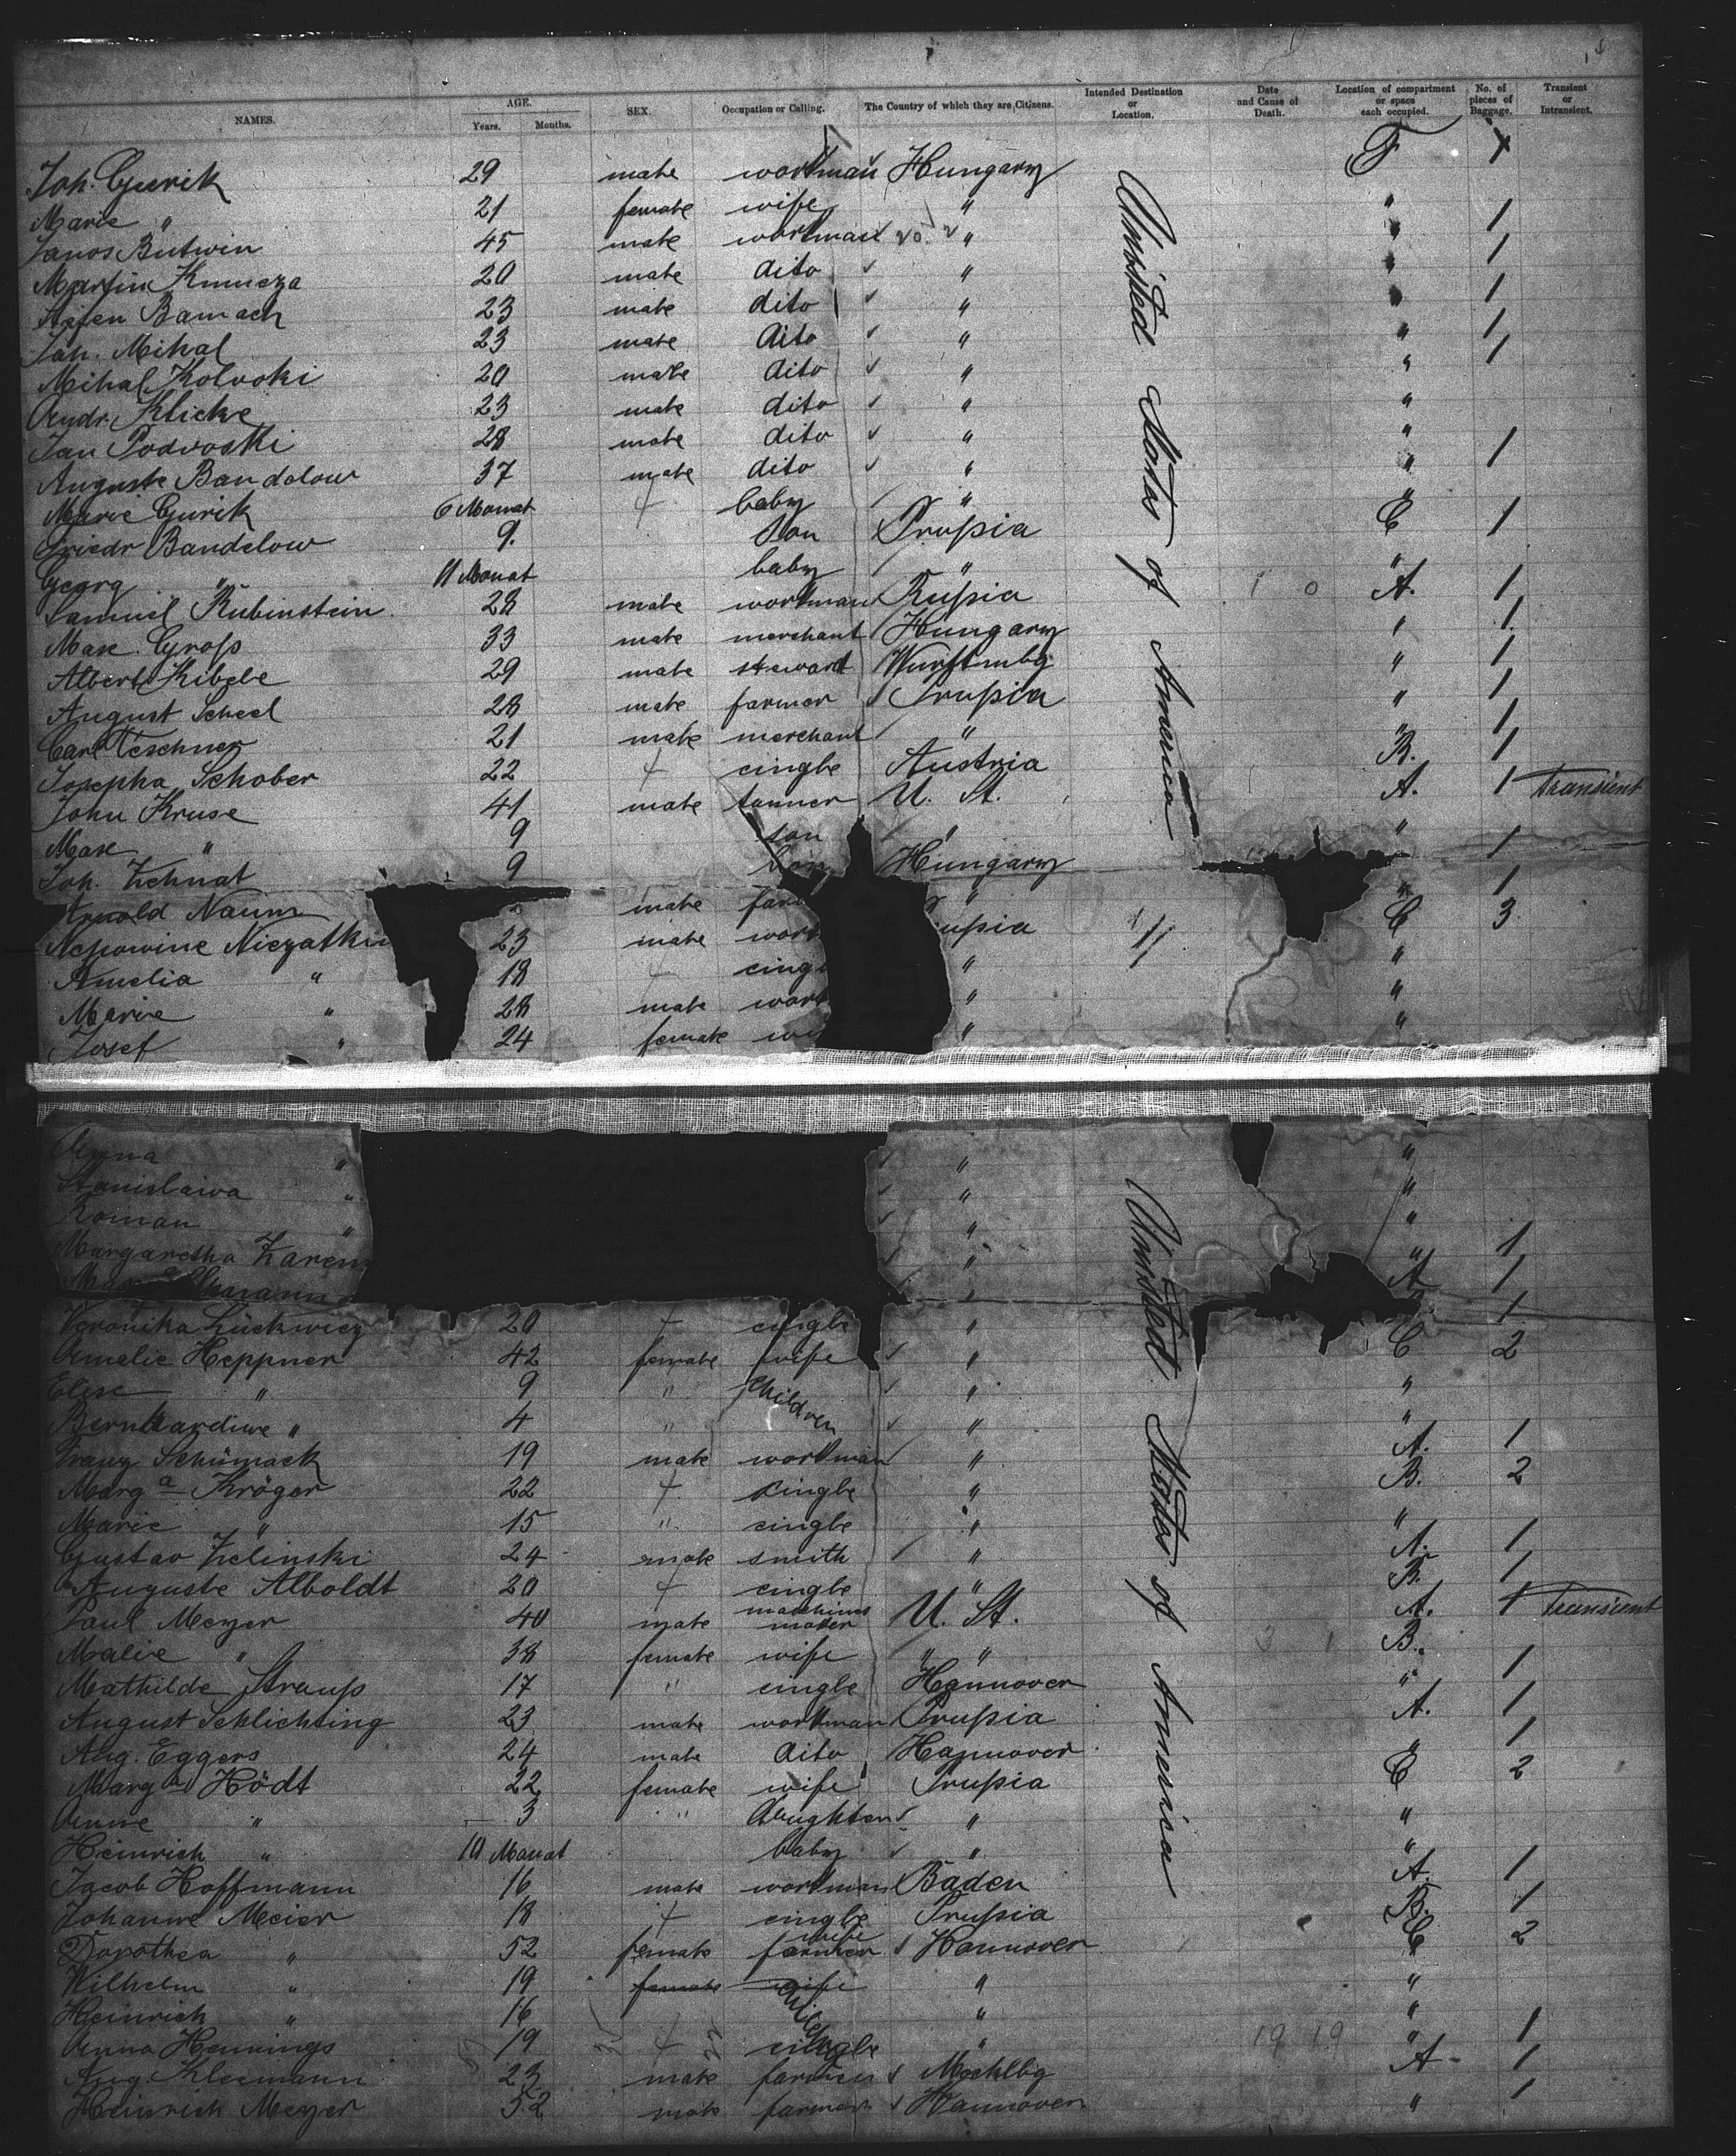 NAMES. AGE. Years. Months. SEX. Occupation or Calling. The Country of which they are Citizens. Intended Destination or Location. Date and Cause of Death. Location of compartment or space each occupied. No. of pieces of Baggage. Transient or Intransient.
Joh. Gurik 29 male workman Hungary F 1
Marie " 21 female wife " "
Janos Butwin 45 male workman " " 1
Martin 20 male dito " " 1
Stefen Bamach 23 male dito " " 1
Joh. Mihal 23 male dito " " 1
Mihal Kolvoki 20 male dito " " 1
Andr. Klicke 23 male dito " "
Jan Podvoski 28 male dito " "
Auguste Bandelow 37 male dito " " 1
Marie Gurik 6 Monat baby " "
Friedr Bandelow 9. son Prußia C 1
Georg " 11 Monat baby " "
Samuel Rubinstein 28 male workman Rußia A. 1
Max Groß 33 male merchant Hungary " 1
Albert Kibele 29 male steward Wurttmbg " 1
August Scheel 28 male farmer Prußia " 1
Carl Teschner 21 male merchant " " 1
Josepha Schober 22 cingle Austria B. 1
John Kruse 41 male tanner U. St. A. 1 Transient
Max " 9 son " "
Joh. Zchnat 9 Hungary 1
Arnold Naum male " " 1
Niezatkin 23 male C 3
Amelia " 18 " "
Marie " 28 male " "
Josef " 24 female " "
United States of America
Anna " " "
Stanislawa " " "
Roman " " "
Margaretha " " 1
" A 1
Veronika Lückwicz 20 cingle " 1
Amelie Heppner 42 female wife " C 2
Elise " 9 " children " "
Bernhardine " 4 " " "
Franz Schümack 19 male workman " A. 1
Marga Kröger 22 cingle " B. 2
Marie " 15 " cingle " "
Gustav Zielinski 24 male smith " A. 1
Auguste Alboldt 20 cingle " B. 1
Paul Meyer 40 male machines maker U. St. A. 1 Transient
Malie " 38 female wife " " B.
Mathilde Strauß 17 " cingle Hannover " 1
August Schlichting 23 male workman Prußia A. 1
Aug. Eggers 24 male dito Hannover " 1
Marga Hödt 22 female wife Prußia C 2
Anne " 3 " daughter " "
Heinrich " 10 Monat baby " "
Jacob Hoffmann 16 male workman Baden A. 1
Johanne Meier 18 cingle Prußia B. 1
Dorothea " 52 female farmer wife Hannover C 2
Wilhelm " 19 female wife " "
Heinrich " 16 " "
Anna Hennings 19 cingle " " 1
Aug. Kleemann 23 male farmer Mecklbg A 1
Heinrich Meyer 52 male farmer Hannover " 1
United States of America